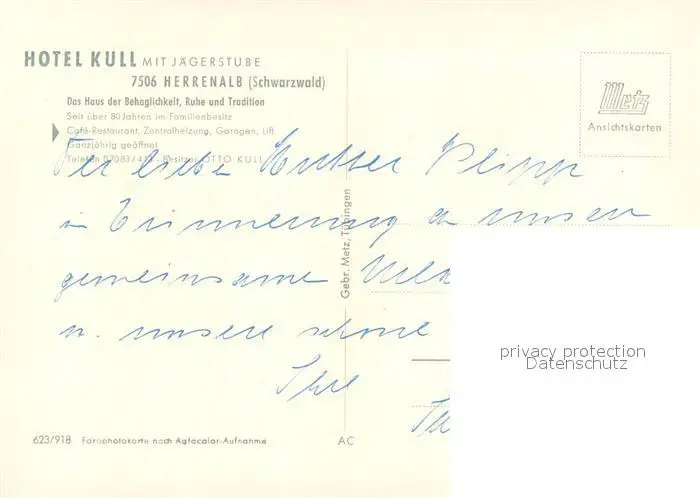 HOTEL KULL MIT JÄGERSTUBE
7506 HERRENALB (Schwarzwald)
Das Haus der Behaglichkeit, Ruhe und Tradition
Seit über 80 Jahren im Familienbesitz
Café-Restaurant, Zentralheizung, Garagen, Lift
Ganzjährig geöffnet
Telefon 07083/ Besitzer OTTO KULL
Metz
Ansichtskarten
Der lieben Mutter
in Erinnerung an unsern
gemeinsame
u. unsere schöne
Ihre
Gebr. Metz, Tübingen
privacy protection
Datenschutz
623/918 Farbphotokarte nach Agfacolor-Aufnahme
AC